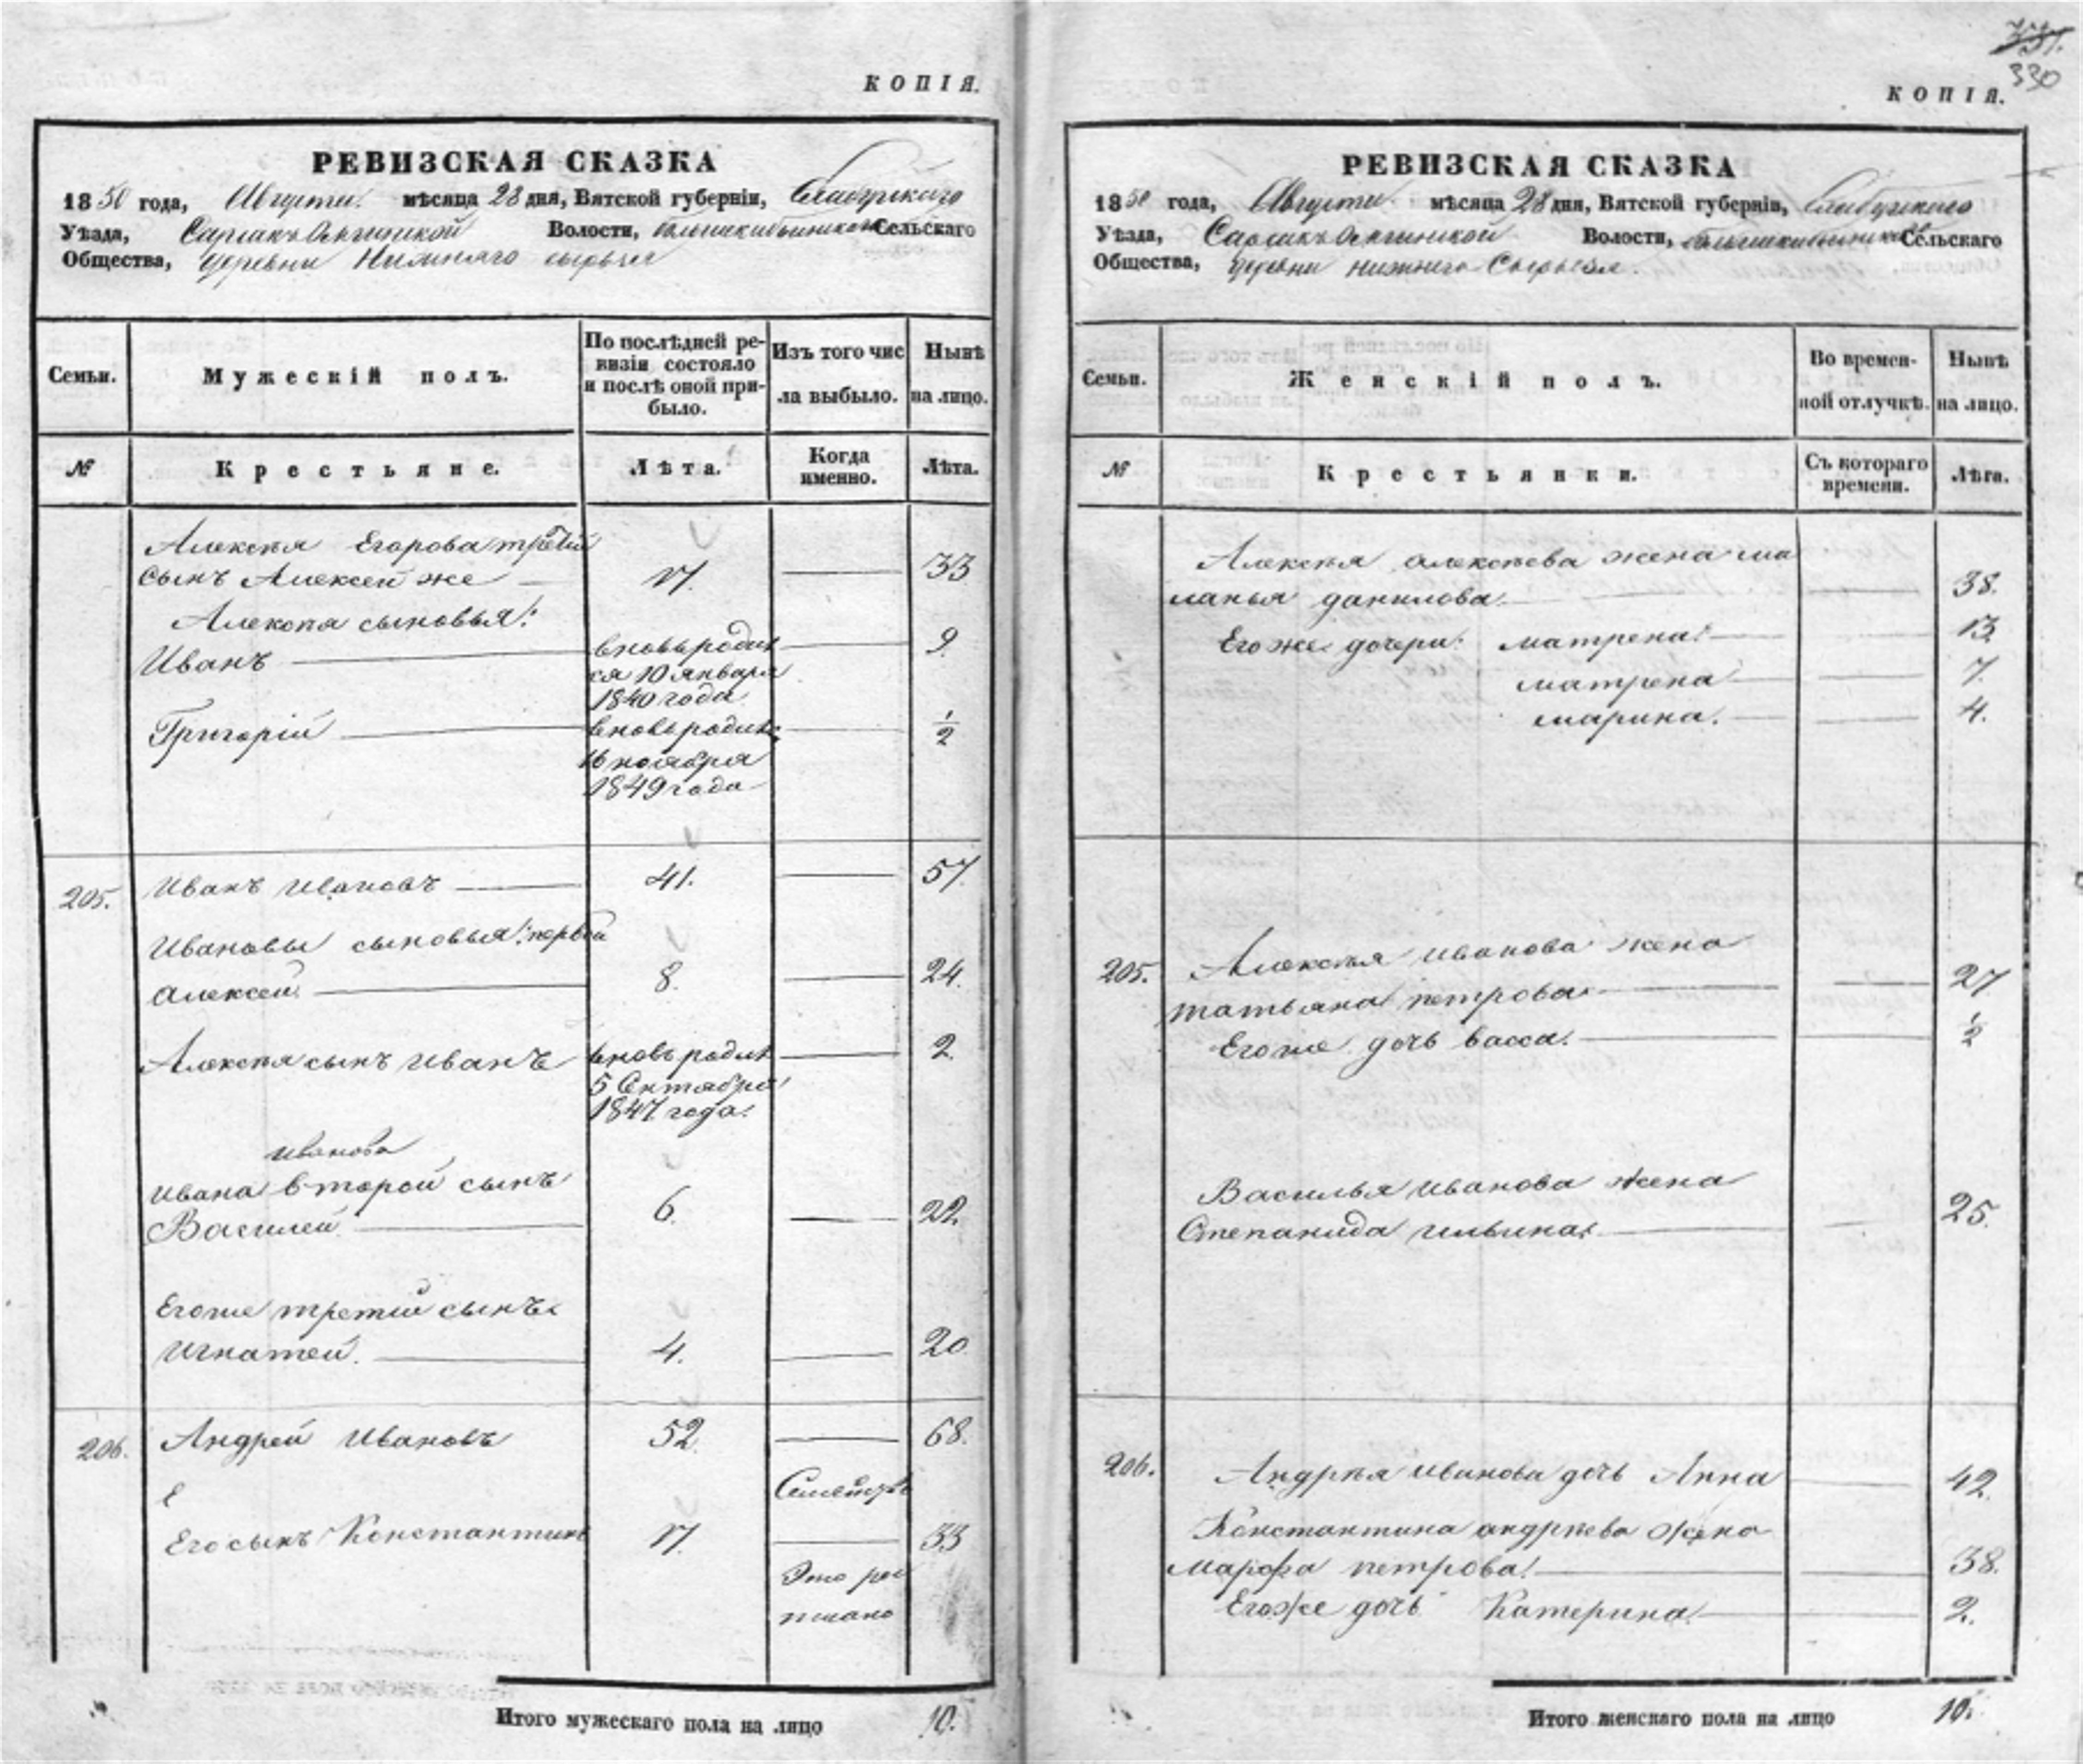 КОПІЯ.
РЕВИЗСКАЯ СКАЗКА
1850 года, Августа мѣсяца 28 дня, Вятской губерніи, Елабужскаго
Уѣзда, Волости, Сельскаго
Общества, деревни Нижняго Сырьеза
Семьи.
Мужескій полъ.
По послѣдней ре-
визіи состояло
и послѣ оной при-
было.
Изъ того чис
ла выбыло.
Нынѣ
на лицо.
№
Крестьяне.
Лѣта.
Когда
именно.
Лѣта.
Алексѣя Егорова третій
сынъ Алексей же 17. 33
Алексѣя сыновья:
Иванъ вновь родил 9.
ся 10 января
1840 года
Григорій вновь родилс 1/2
16 ноября
1849 года
205. Иванъ Ивановъ 41. 57
Ивановы сыновья: первой
Алексей 8. 24.
Алексѣя сынъ Иванъ вновь родил 2.
5 Сентября
1847 года.
Иванова
Ивана второй сынъ
Василей 6. 22.
Егоже третий сынъ
Игнатей. 4. 20.
206. Андрей Ивановъ 52. 68.
Его сынъ Константинъ 17. 33
Итого мужескаго пола на лицо 10.
331.
330
КОПІЯ.
РЕВИЗСКАЯ СКАЗКА
1850 года, Августа мѣсяца 28 дня, Вятской губерніи, Елабужскаго
Уѣзда, Волости, Сельскаго
Общества, деревни Нижнего Сырьеза.
Семьи.
Женскій полъ.
Во времен-
ной отлучкѣ.
Нынѣ
на лицо.
№
Крестьянки.
Съ котораго
времени.
Лѣта.
Алексѣя алексѣева жена ма
ланья данилова. 38.
Его же дочери: матрена 13.
матрена 7.
марина. 4.
205. Алексѣя иванова жена
татьяна петрова 27
Егоже дочь васса. 1/2
Василья иванова жена
Степанида ильина 25.
206. Андрѣя иванова дочь Анна 42.
Константина андрѣева жена
марфа петрова 38.
Егоже дочь Катерина 2.
Итого женскаго пола на лицо 10.